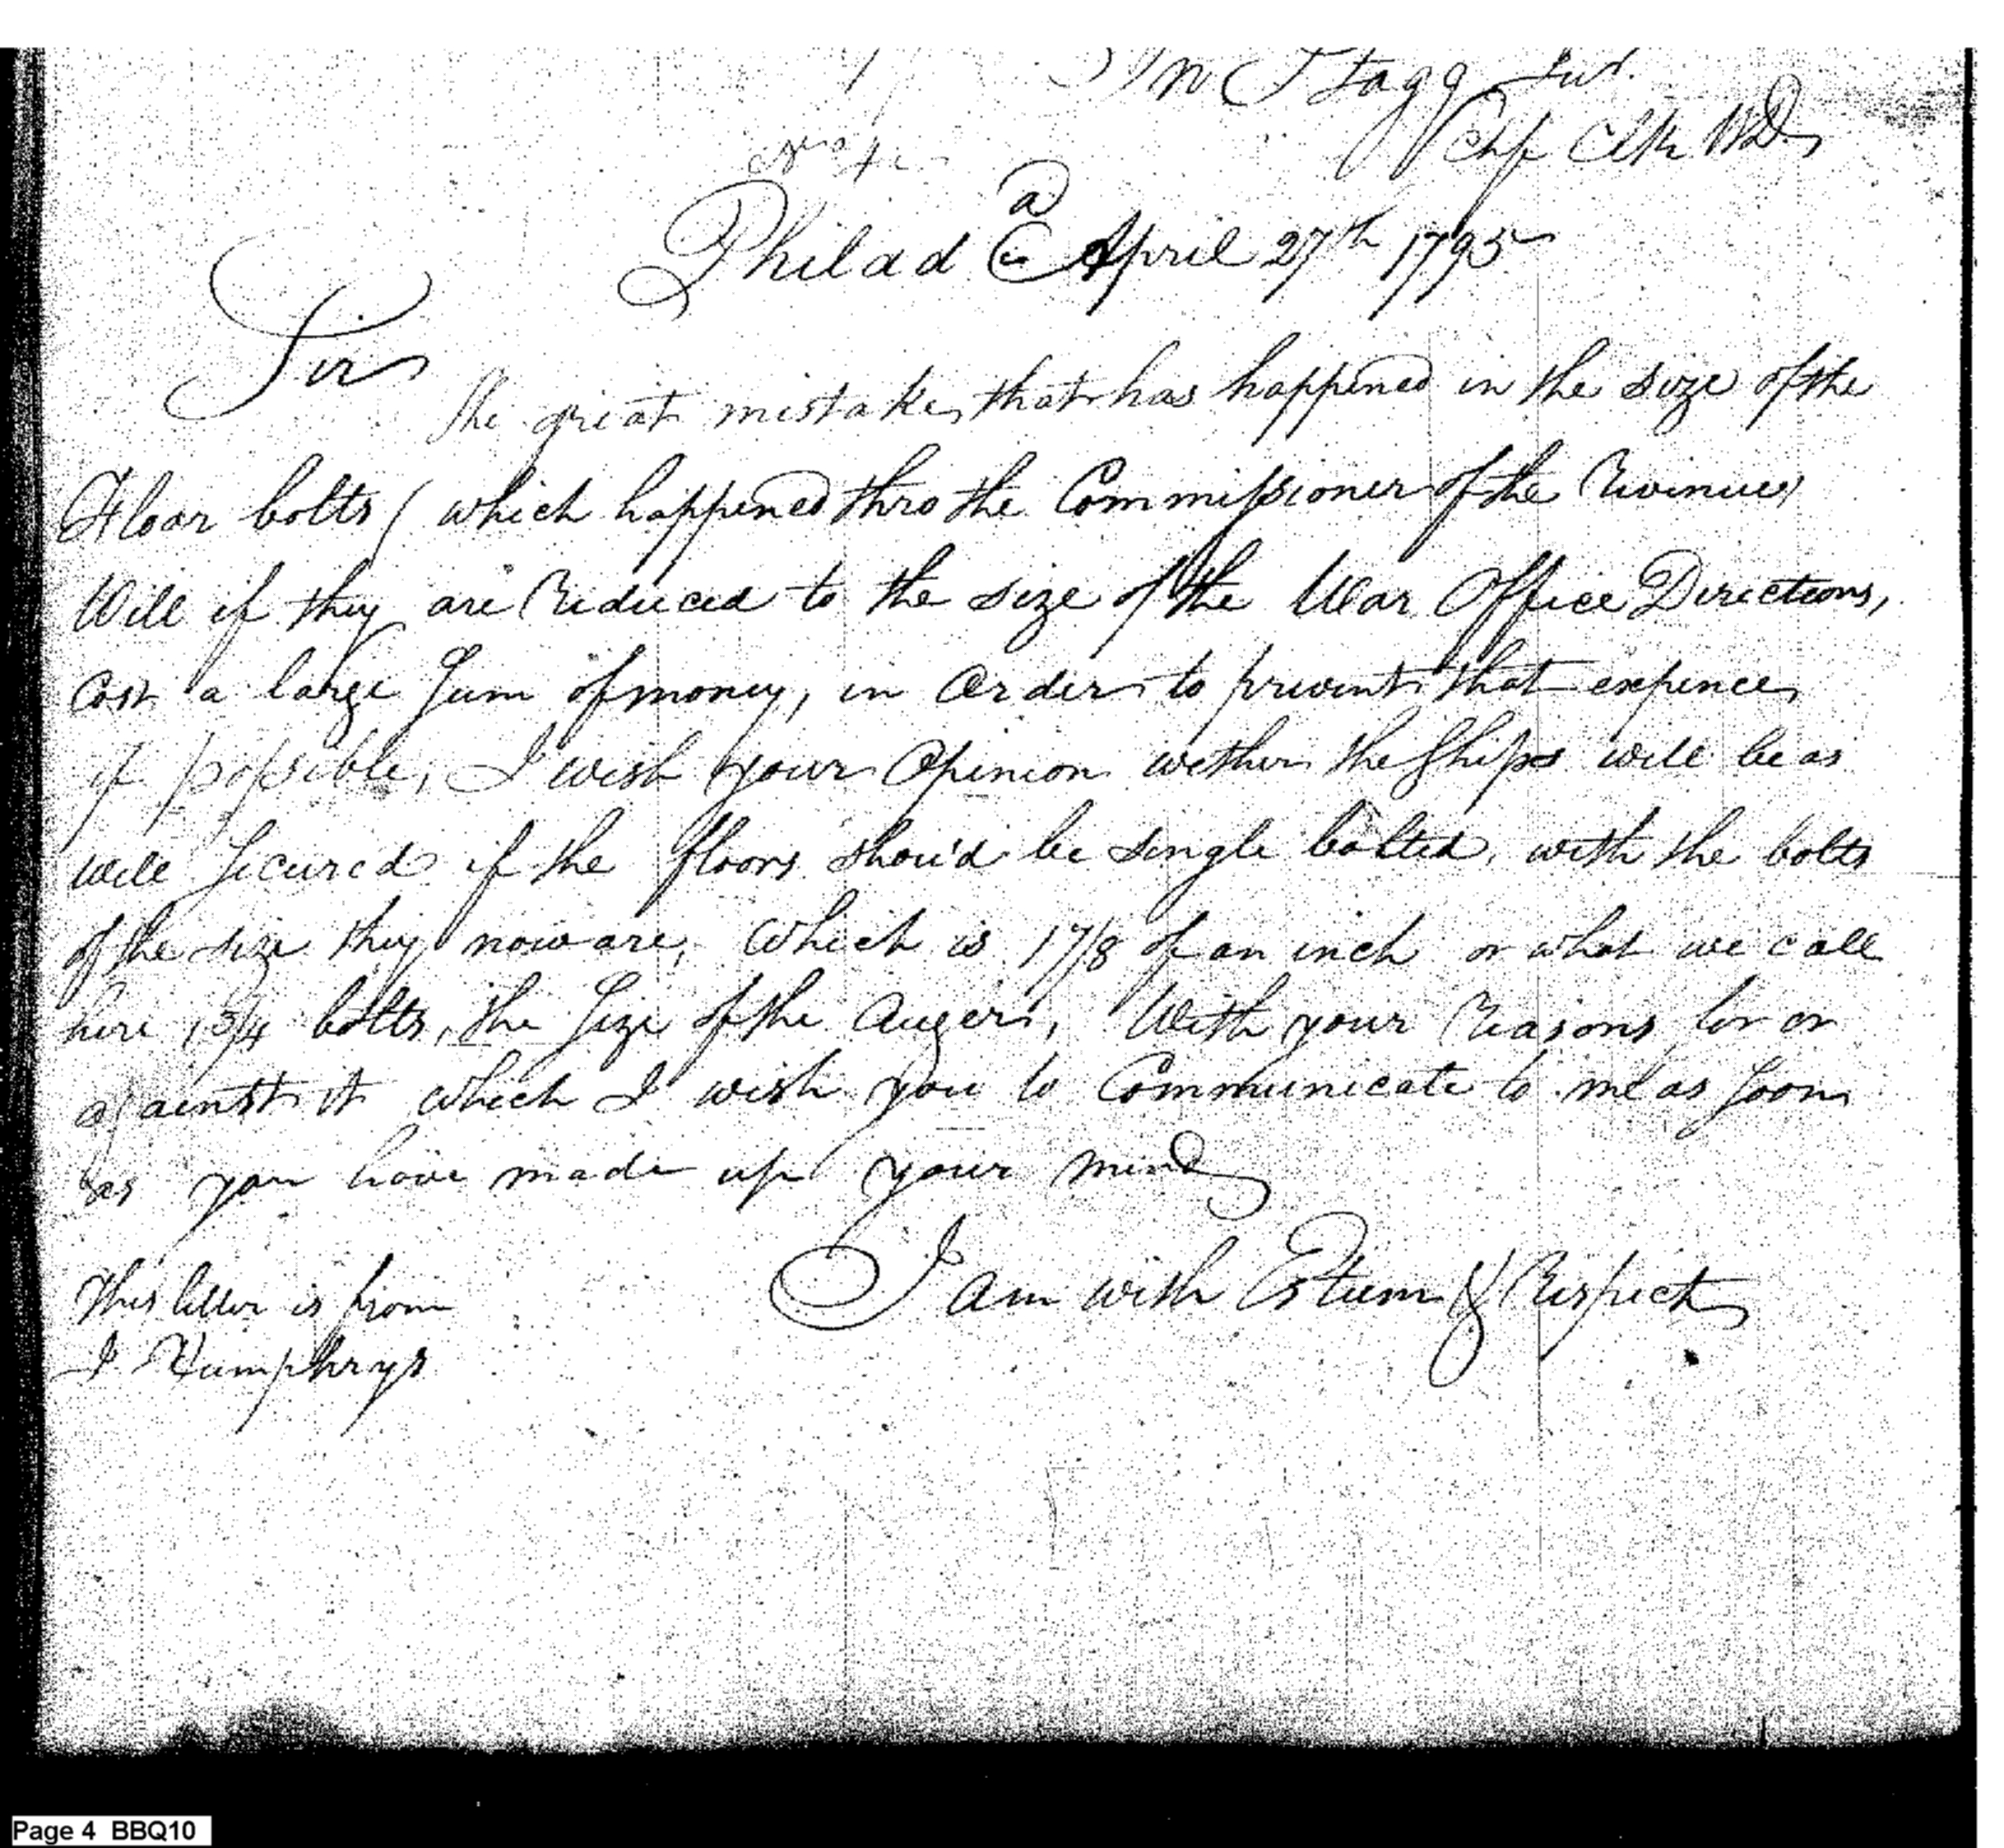 Jno Stagg Jur.
Chf Clk WD
Philad a April 27th 1795
Sir
the great mistake, that has happened in the size of the
Floar bolts ( which happened thro the Commissioner of the Revinue)
Will if they are Reduced to the size of the War Office Directions,
Cost a large Sum of money, in Order to prevent that expence,
if possible, I wish your Opinion wether the Ships will be as
well Secured if the floors shou'd be single bolted, with the bolts
of the size they now are, Which is 17/8 of an inch or what we call
here 13/4 bolts, the Size of the Auger, With your Reasons for or
against it which I wish you to Communicate to me as Soon
as you have made up your mind
I am with Esteem & Respect
This letter is from
J. Humphrys
Page 4 BBQ10